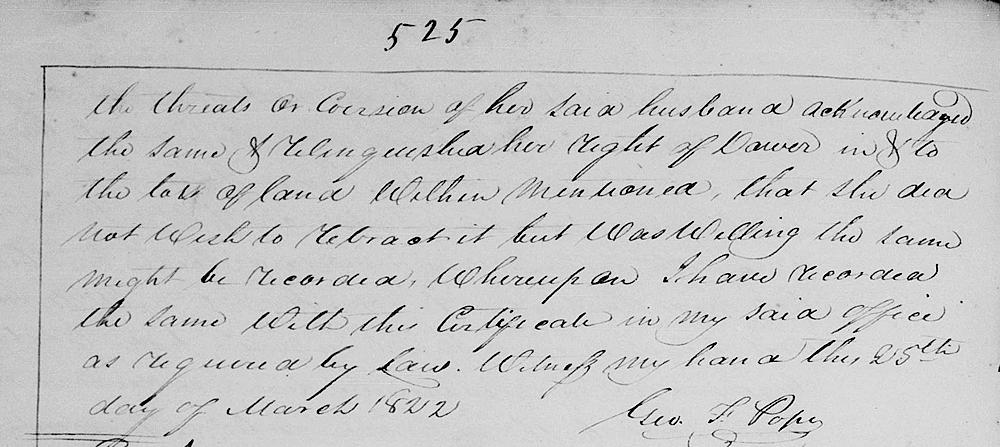 525
the threats or Coersion of her said husband acknowledged
the same & relinquished her right of Dower in & to
the lot of land Within mentioned, that she did
not Wish to retract it but Was Willing the same
might be recorded, Whereupon I have recorded
the same With this Certificate in my said office
as required by law. Witness my hand this 25th
day of March 1822
Geo. F. Pope